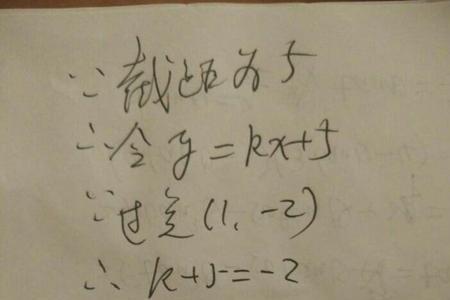 ∵截距为5
∴令y=kx+5
∵过点(1,-2)
∴k+5=-2